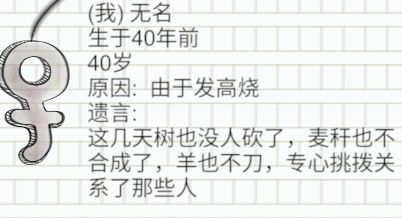 (我) 无名
生于40年前
40岁
原因: 由于发高烧
遗言:
这几天树也没人砍了，麦秆也不
合成了，羊也不刀，专心挑拨关
系了那些人